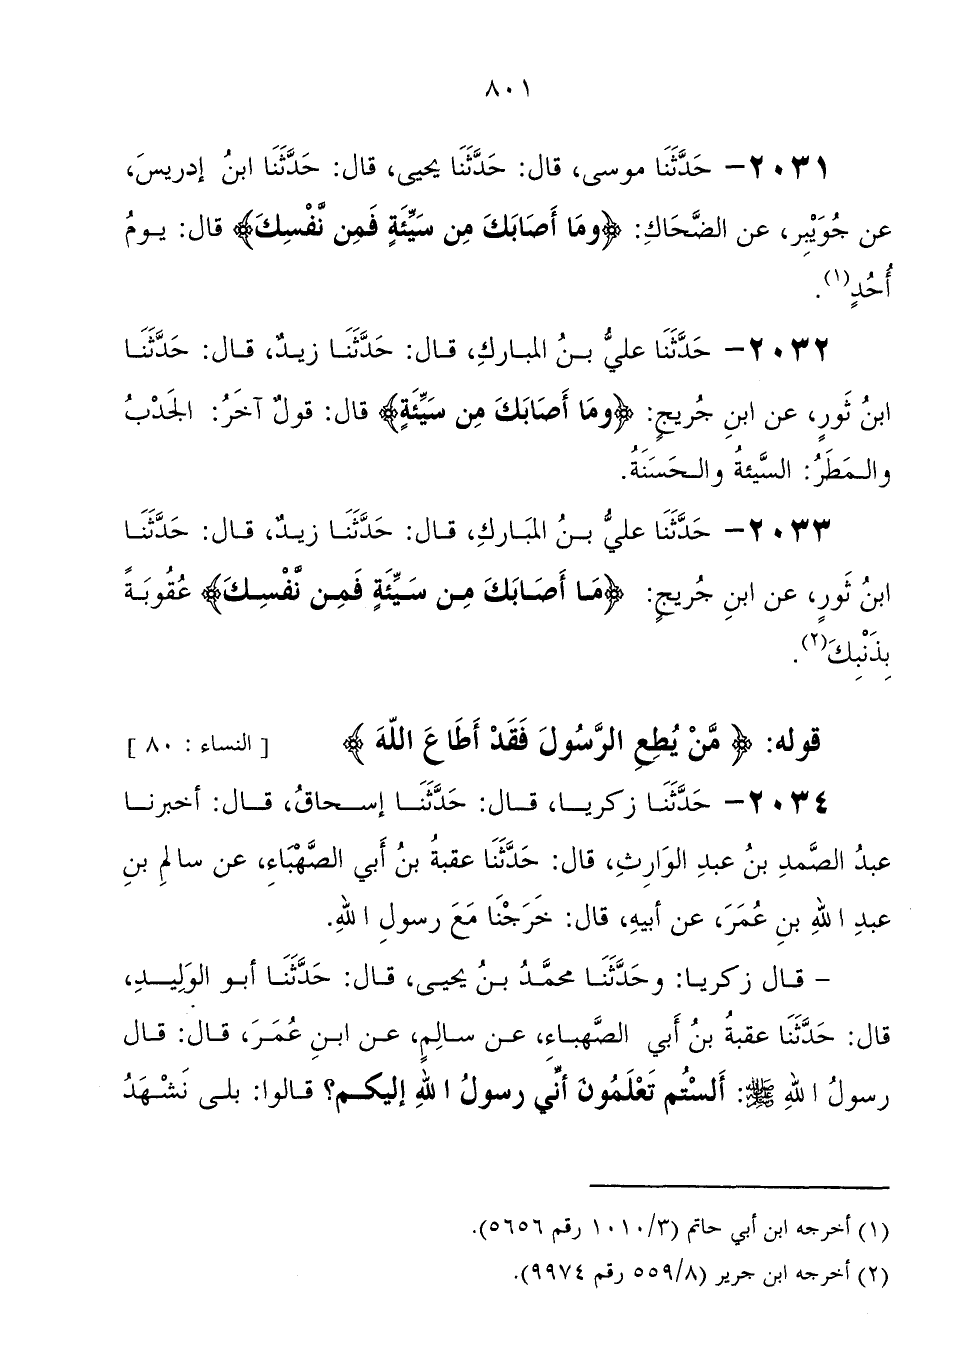 ٨٠١
٢٠٣١– حَدَّثَنَا موسى، قال: حَدَّثَنَا يحيى، قال: حَدَّثَنَا ابنُ إدريسَ،
عن جُوَيْبِر، عن الضَّحَاكِ: ﴿وَمَا أَصَابَكَ مِن سَيِّئَةٍ فَمِن نَّفْسِكَ﴾ قال: يومُ
أُحُدٍ(١).
٢٠٣٢– حَدَّثَنَا عليُّ بنُ المباركِ، قال: حَدَّثَنَا زيدٌ، قال: حَدَّثَنَا
ابنُ ثَورٍ، عن ابنِ جُريجٍ: ﴿وَمَا أَصَابَكَ مِن سَيِّئَةٍ﴾ قال: قولٌ آخَرُ: الجَدْبُ
والمَطَرُ: السَّيئةُ والحَسَنَةُ.
٢٠٣٣– حَدَّثَنَا عليُّ بنُ المبَاركِ، قال: حَدَّثَنَا زيدٌ، قال: حَدَّثَنَا
ابنُ ثَورٍ، عن ابنِ جُريجٍ: ﴿مَا أَصَابَكَ مِن سَيِّئَةٍ فَمِن نَّفْسِكَ﴾ عُقُوبَةً
بِذَنْبِكَ(٢).
قوله: ﴿مَّنْ يُطِعِ الرَّسُولَ فَقَدْ أَطَاعَ اللَّهَ﴾ [النساء: ٨٠]
٢٠٣٤– حَدَّثَنَا زكريا، قال: حَدَّثَنَا إسحاقُ، قال: أخبرنا
عبدُ الصَّمدِ بنُ عبدِ الوَارِثِ، قال: حَدَّثَنَا عقبةُ بنُ أَبي الصَّهْبَاءِ، عن سالمِ بنِ
عبدِ اللهِ بنِ عُمَرَ، عن أبيهِ، قال: خَرَجْنَا مَعَ رسولِ اللهِ.
– قال زكريا: وحَدَّثَنَا محمَّدُ بنُ يحيى، قال: حَدَّثَنَا أبو الوَلِيدِ،
قال: حَدَّثَنَا عقبةُ بنُ أَبي الصَّهباءِ، عن سالِمٍ، عن ابنِ عُمَرَ، قال: قال
رسولُ اللهِ ﷺ: أَلسْتُم تَعْلَمُونَ أنِّي رسولُ اللهِ إليكم؟ قالوا: بلى نَشْهَدُ
(١) أخرجه ابن أبي حاتم (١٠١٠/٣ رقم ٥٦٥٦).
(٢) أخرجه ابن جرير (٥٥٩/٨ رقم ٩٩٧٤).